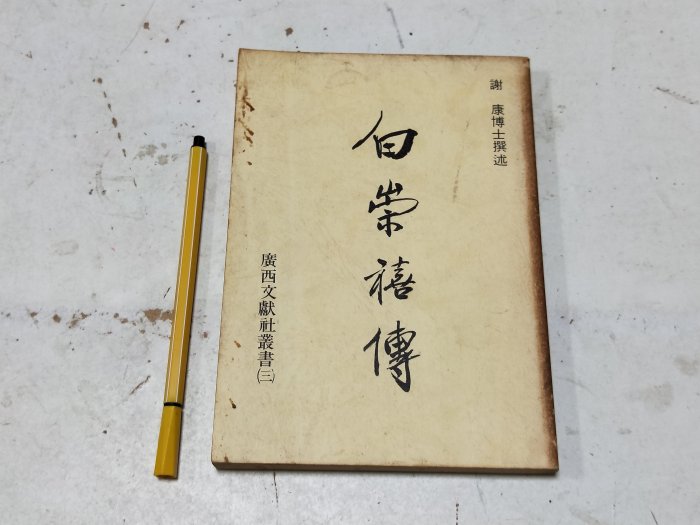 謝 康博士撰述
白崇禧傳
廣西文獻社叢書(三)